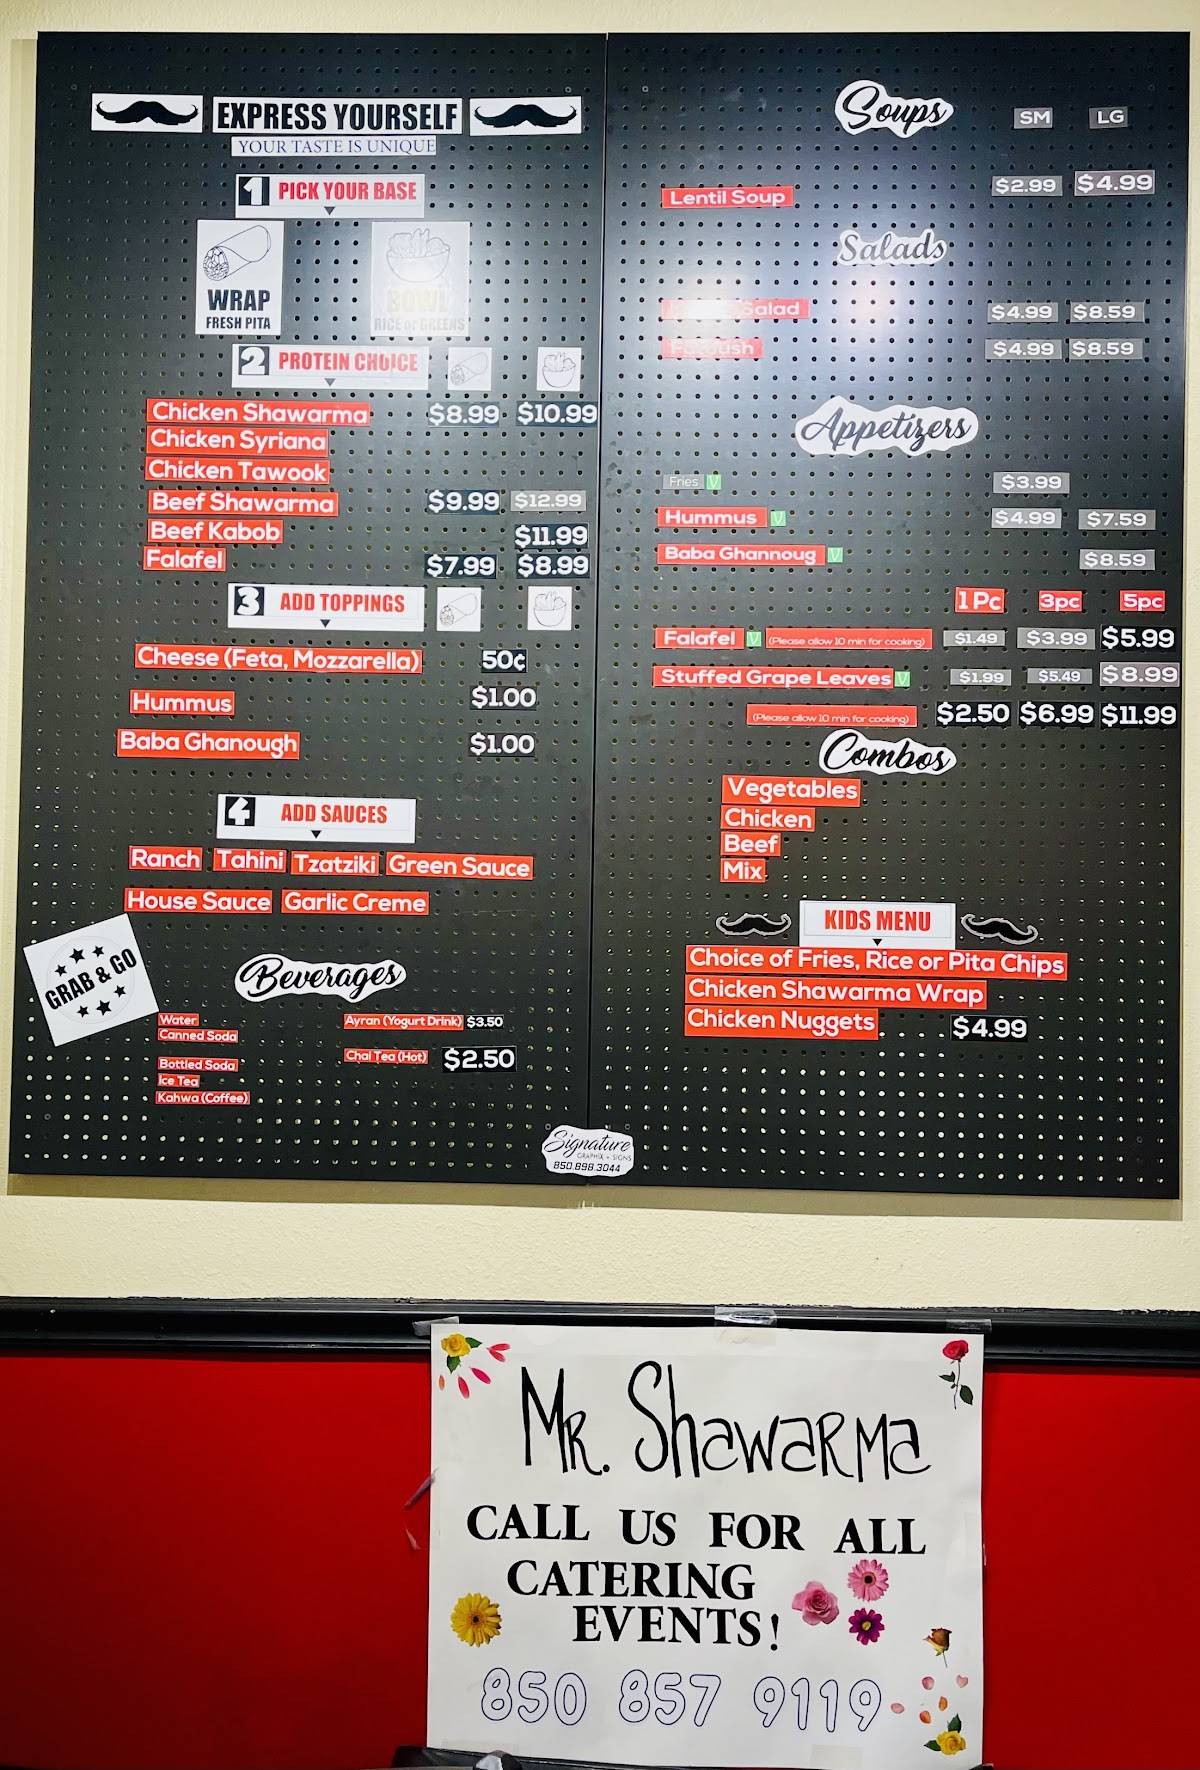 EXPRESS YOURSELF
YOUR TASTE IS UNIQUE
1 PICK YOUR BASE
WRAP
FRESH PITA
BOWL
RICE or GREENS
2 PROTEIN CHOICE
Chicken Shawarma $8.99 $10.99
Chicken Syriana
Chicken Tawook
Beef Shawarma $9.99 $12.99
Beef Kabob $11.99
Falafel $7.99 $8.99
3 ADD TOPPINGS
Cheese (Feta, Mozzarella) 50¢
Hummus $1.00
Baba Ghanough $1.00
4 ADD SAUCES
Ranch Tahini Tzatziki Green Sauce
House Sauce Garlic Creme
GRAB & GO
Beverages
Water
Canned Soda
Bottled Soda
Ice Tea
Kahwa (Coffee)
Ayran (Yogurt Drink) $3.50
Chai Tea (Hot) $2.50
Soups SM LG
Lentil Soup $2.99 $4.99
Salads
Salad $4.99 $8.59
$4.99 $8.59
Appetizers
Fries V $3.99
Hummus V $4.99 $7.59
Baba Ghannoug V $8.59
1 Pc 3pc 5pc
Falafel V (Please allow 10 min for cooking) $1.49 $3.99 $5.99
Stuffed Grape Leaves V $1.99 $5.49 $8.99
(Please allow 10 min for cooking) $2.50 $6.99 $11.99
Combos
Vegetables
Chicken
Beef
Mix
KIDS MENU
Choice of Fries, Rice or Pita Chips
Chicken Shawarma Wrap
Chicken Nuggets $4.99
Signature
GRAPHIX + SIGNS
850.898.3044
MR. Shawarma
CALL US FOR ALL
CATERING
EVENTS!
850 857 9119